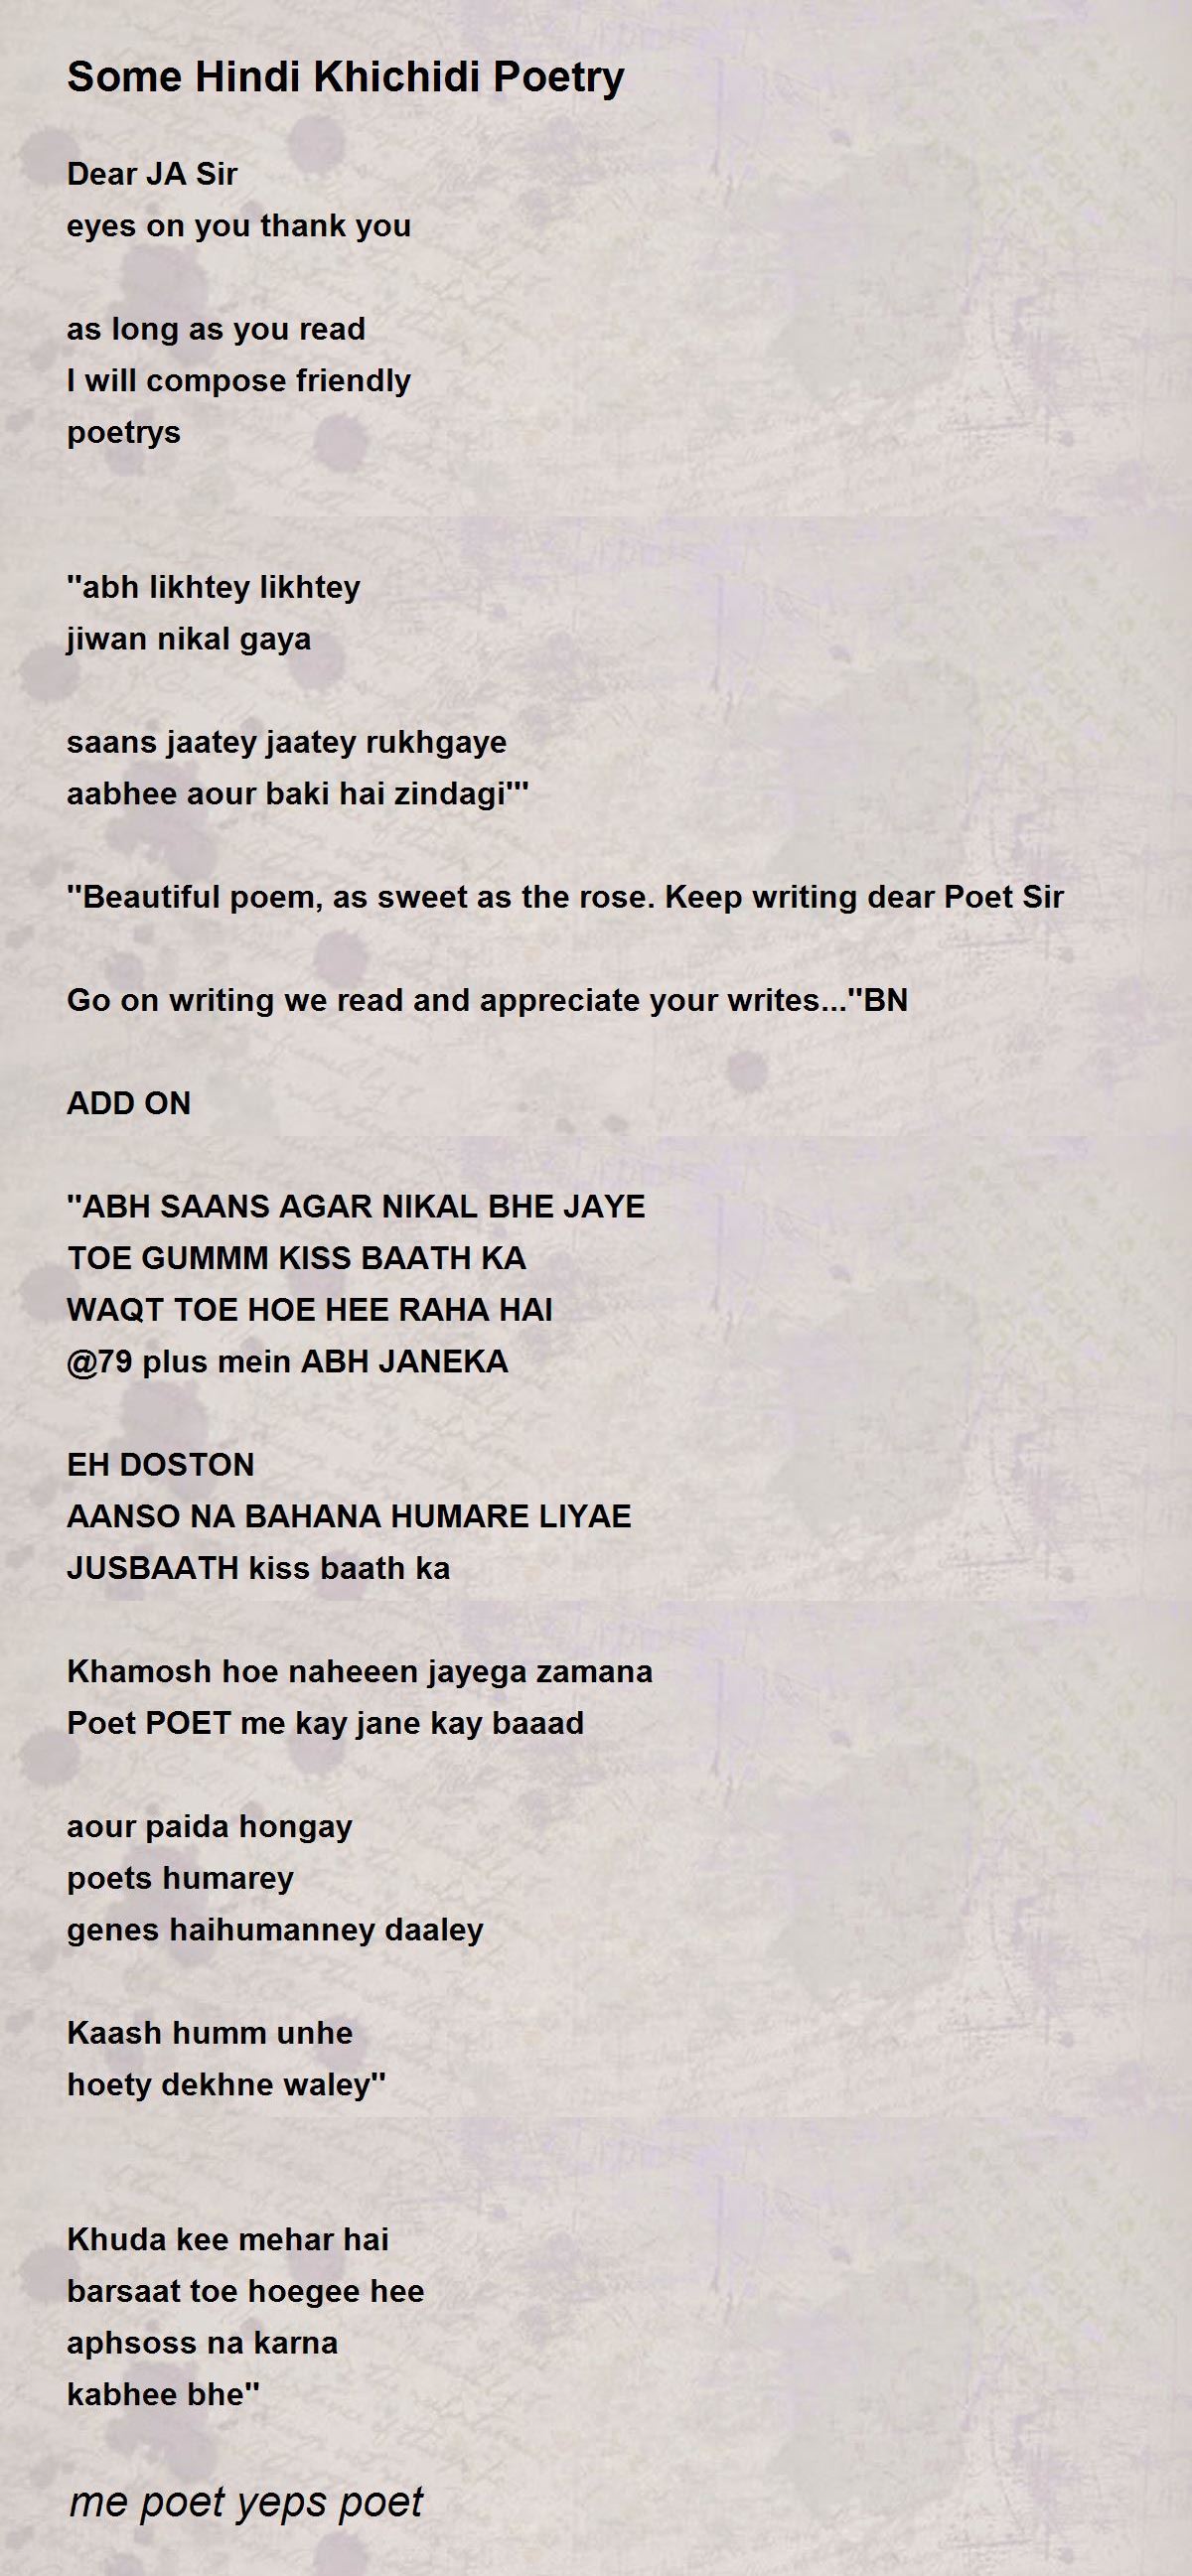 Some Hindi Khichidi Poetry
Dear JA Sir
eyes on you thank you
as long as you read
I will compose friendly
poetrys
''abh likhtey likhtey
jiwan nikal gaya
saans jaatey jaatey rukhgaye
aabhee aour baki hai zindagi'''
''Beautiful poem, as sweet as the rose. Keep writing dear Poet Sir
Go on writing we read and appreciate your writes...''BN
ADD ON
''ABH SAANS AGAR NIKAL BHE JAYE
TOE GUMMM KISS BAATH KA
WAQT TOE HOE HEE RAHA HAI
@79 plus mein ABH JANEKA
EH DOSTON
AANSO NA BAHANA HUMARE LIYAE
JUSBAATH kiss baath ka
Khamosh hoe naheeen jayega zamana
Poet POET me kay jane kay baaad
aour paida hongay
poets humarey
genes haihumanney daaley
Kaash humm unhe
hoety dekhne waley''
Khuda kee mehar hai
barsaat toe hoegee hee
aphsoss na karna
kabhee bhe''
me poet yeps poet